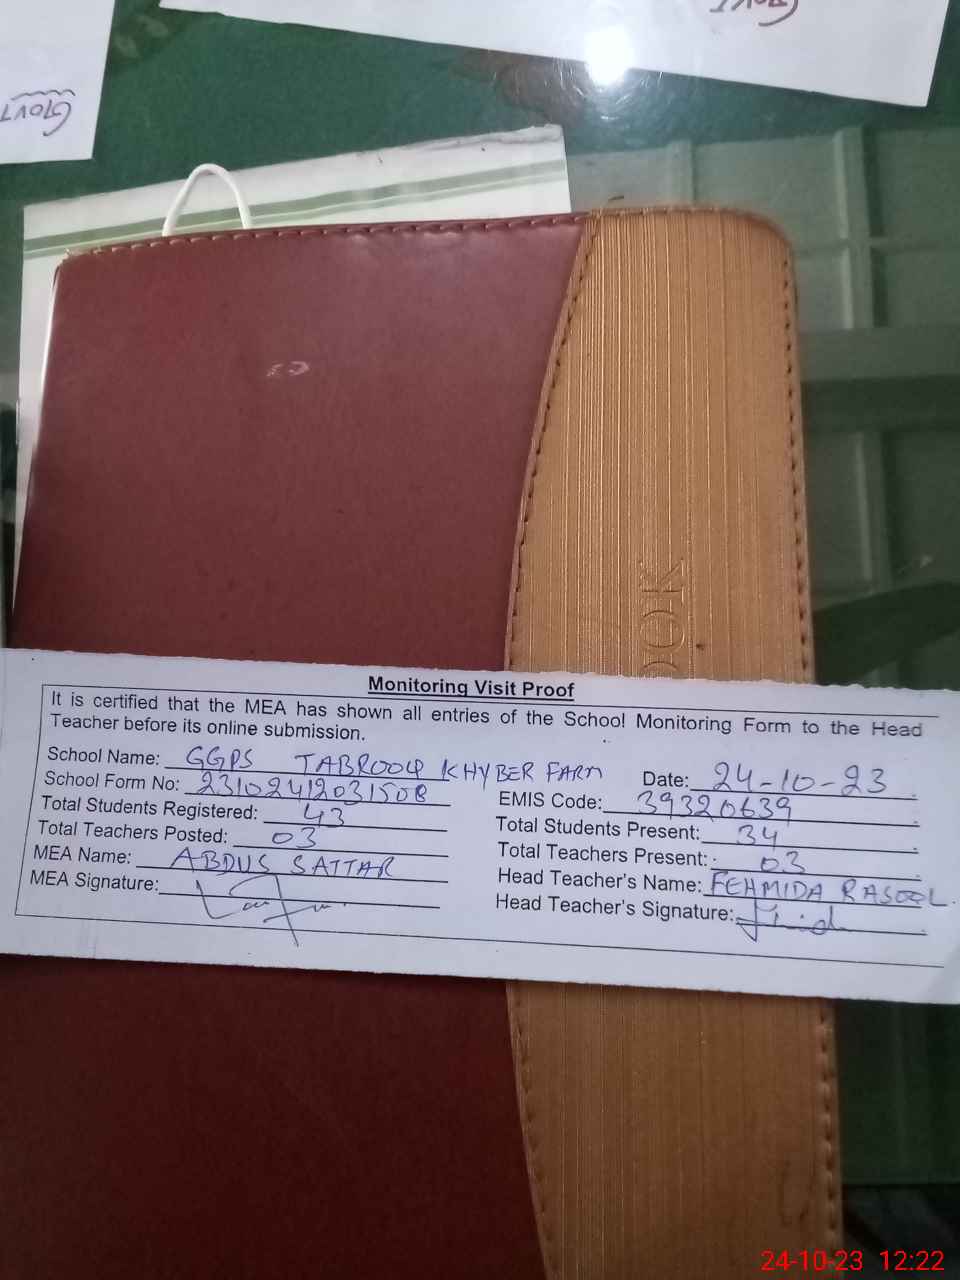 GOVT
GOVT
OOK
Monitoring Visit Proof
It is certified that the MEA has shown all entries of the School Monitoring Form to the Head
Teacher before its online submission.
School Name: GGPS TABROOQ KHYBER FARM Date: 24-10-23
School Form No: 23102412031508 EMIS Code: 39320639
Total Students Registered: 43 Total Students Present: 34
Total Teachers Posted: 03 Total Teachers Present: 03
MEA Name: ABDUS SATTAR Head Teacher's Name: FEHMIDA RASOOL.
MEA Signature: Head Teacher's Signature:
24-10-23 12:22